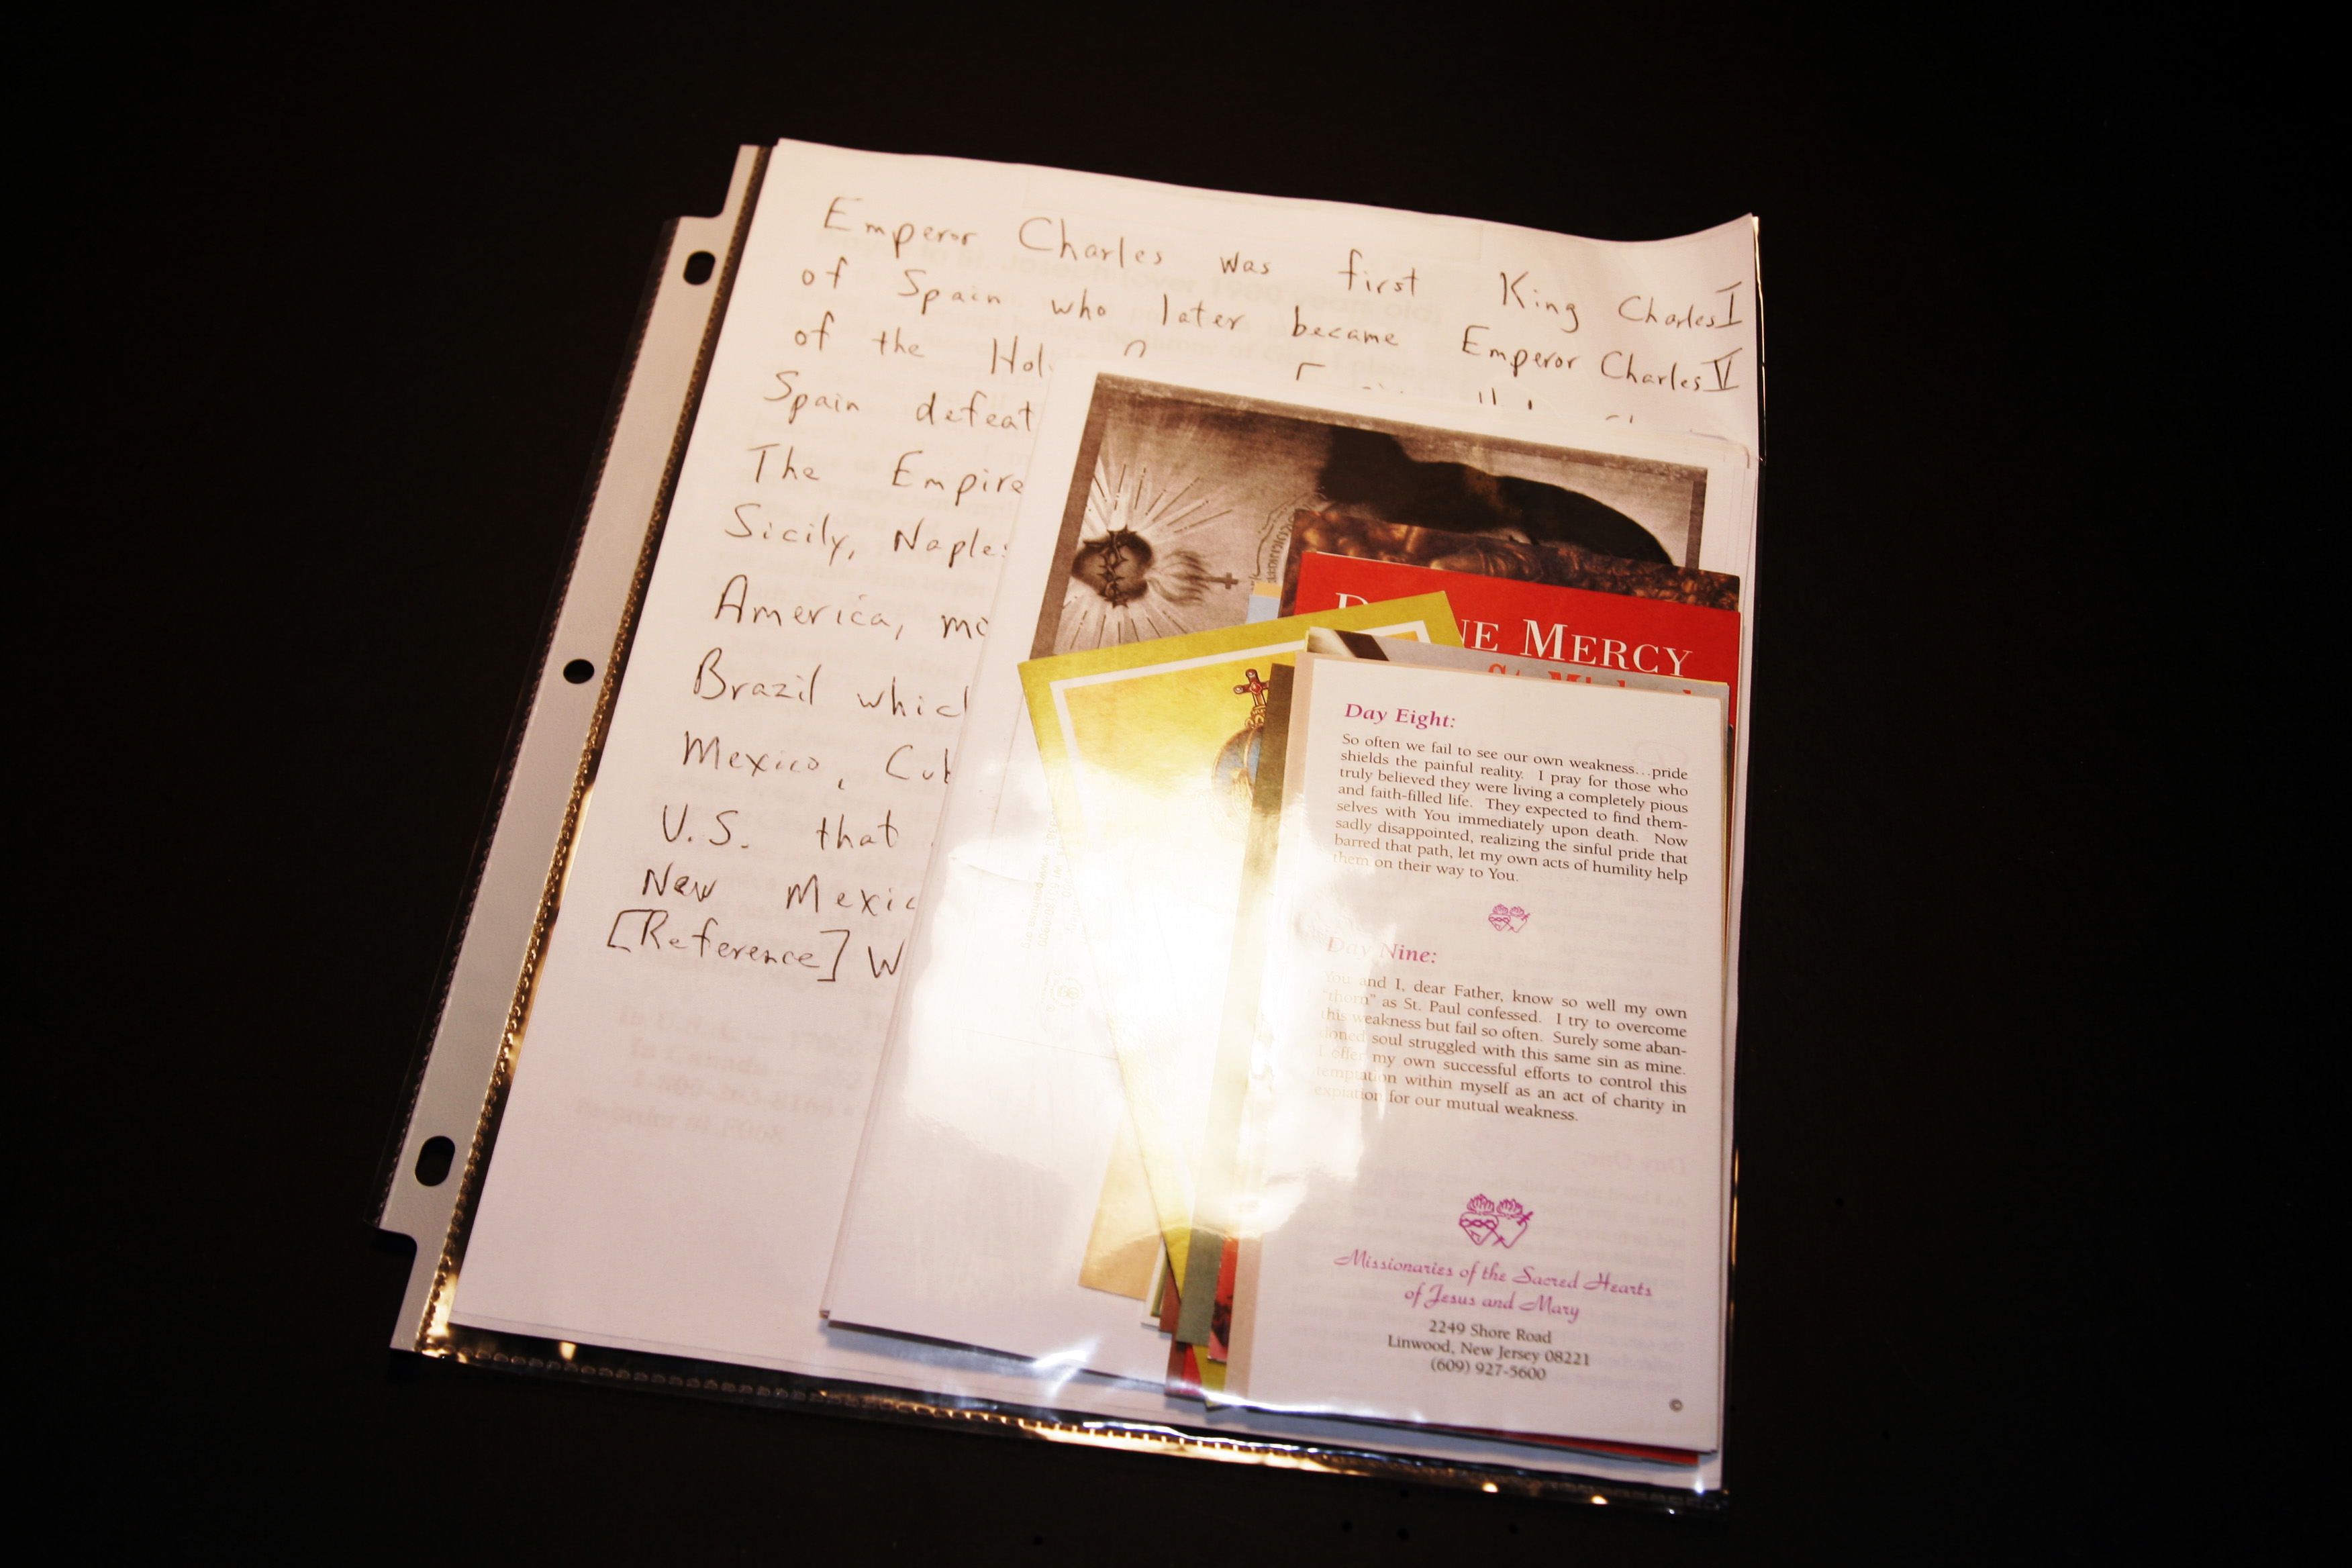 Emperor Charles was first King Charles I
of Spain who later became Emperor Charles V
of the
Spain defeat
The Empire
Sicily, Naples
America,
Brazil
Mexico,
U.S. that
New
[Reference]
NE MERCY
Day Eight:
So often we fail to see our own weakness...pride
shields the painful reality. I pray for those who
truly believed they were living a completely pious
and faith-filled life. They expected to find them-
selves with You immediately upon death. Now
sadly disappointed, realizing the sinful pride that
barred that path, let my own acts of humility help
them on their way to You.
Day Nine:
You and I, dear Father, know so well my own
"thorn" as St. Paul confessed. I try to overcome
this weakness but fail so often. Surely some aban-
doned soul struggled with this same sin as mine.
I offer my own successful efforts to control this
temptation within myself as an act of charity in
expiation for our mutual weakness.
Missionaries of the Sacred Hearts
of Jesus and Mary
2249 Shore Road
Linwood, New Jersey 08221
(609) 927-5600
©